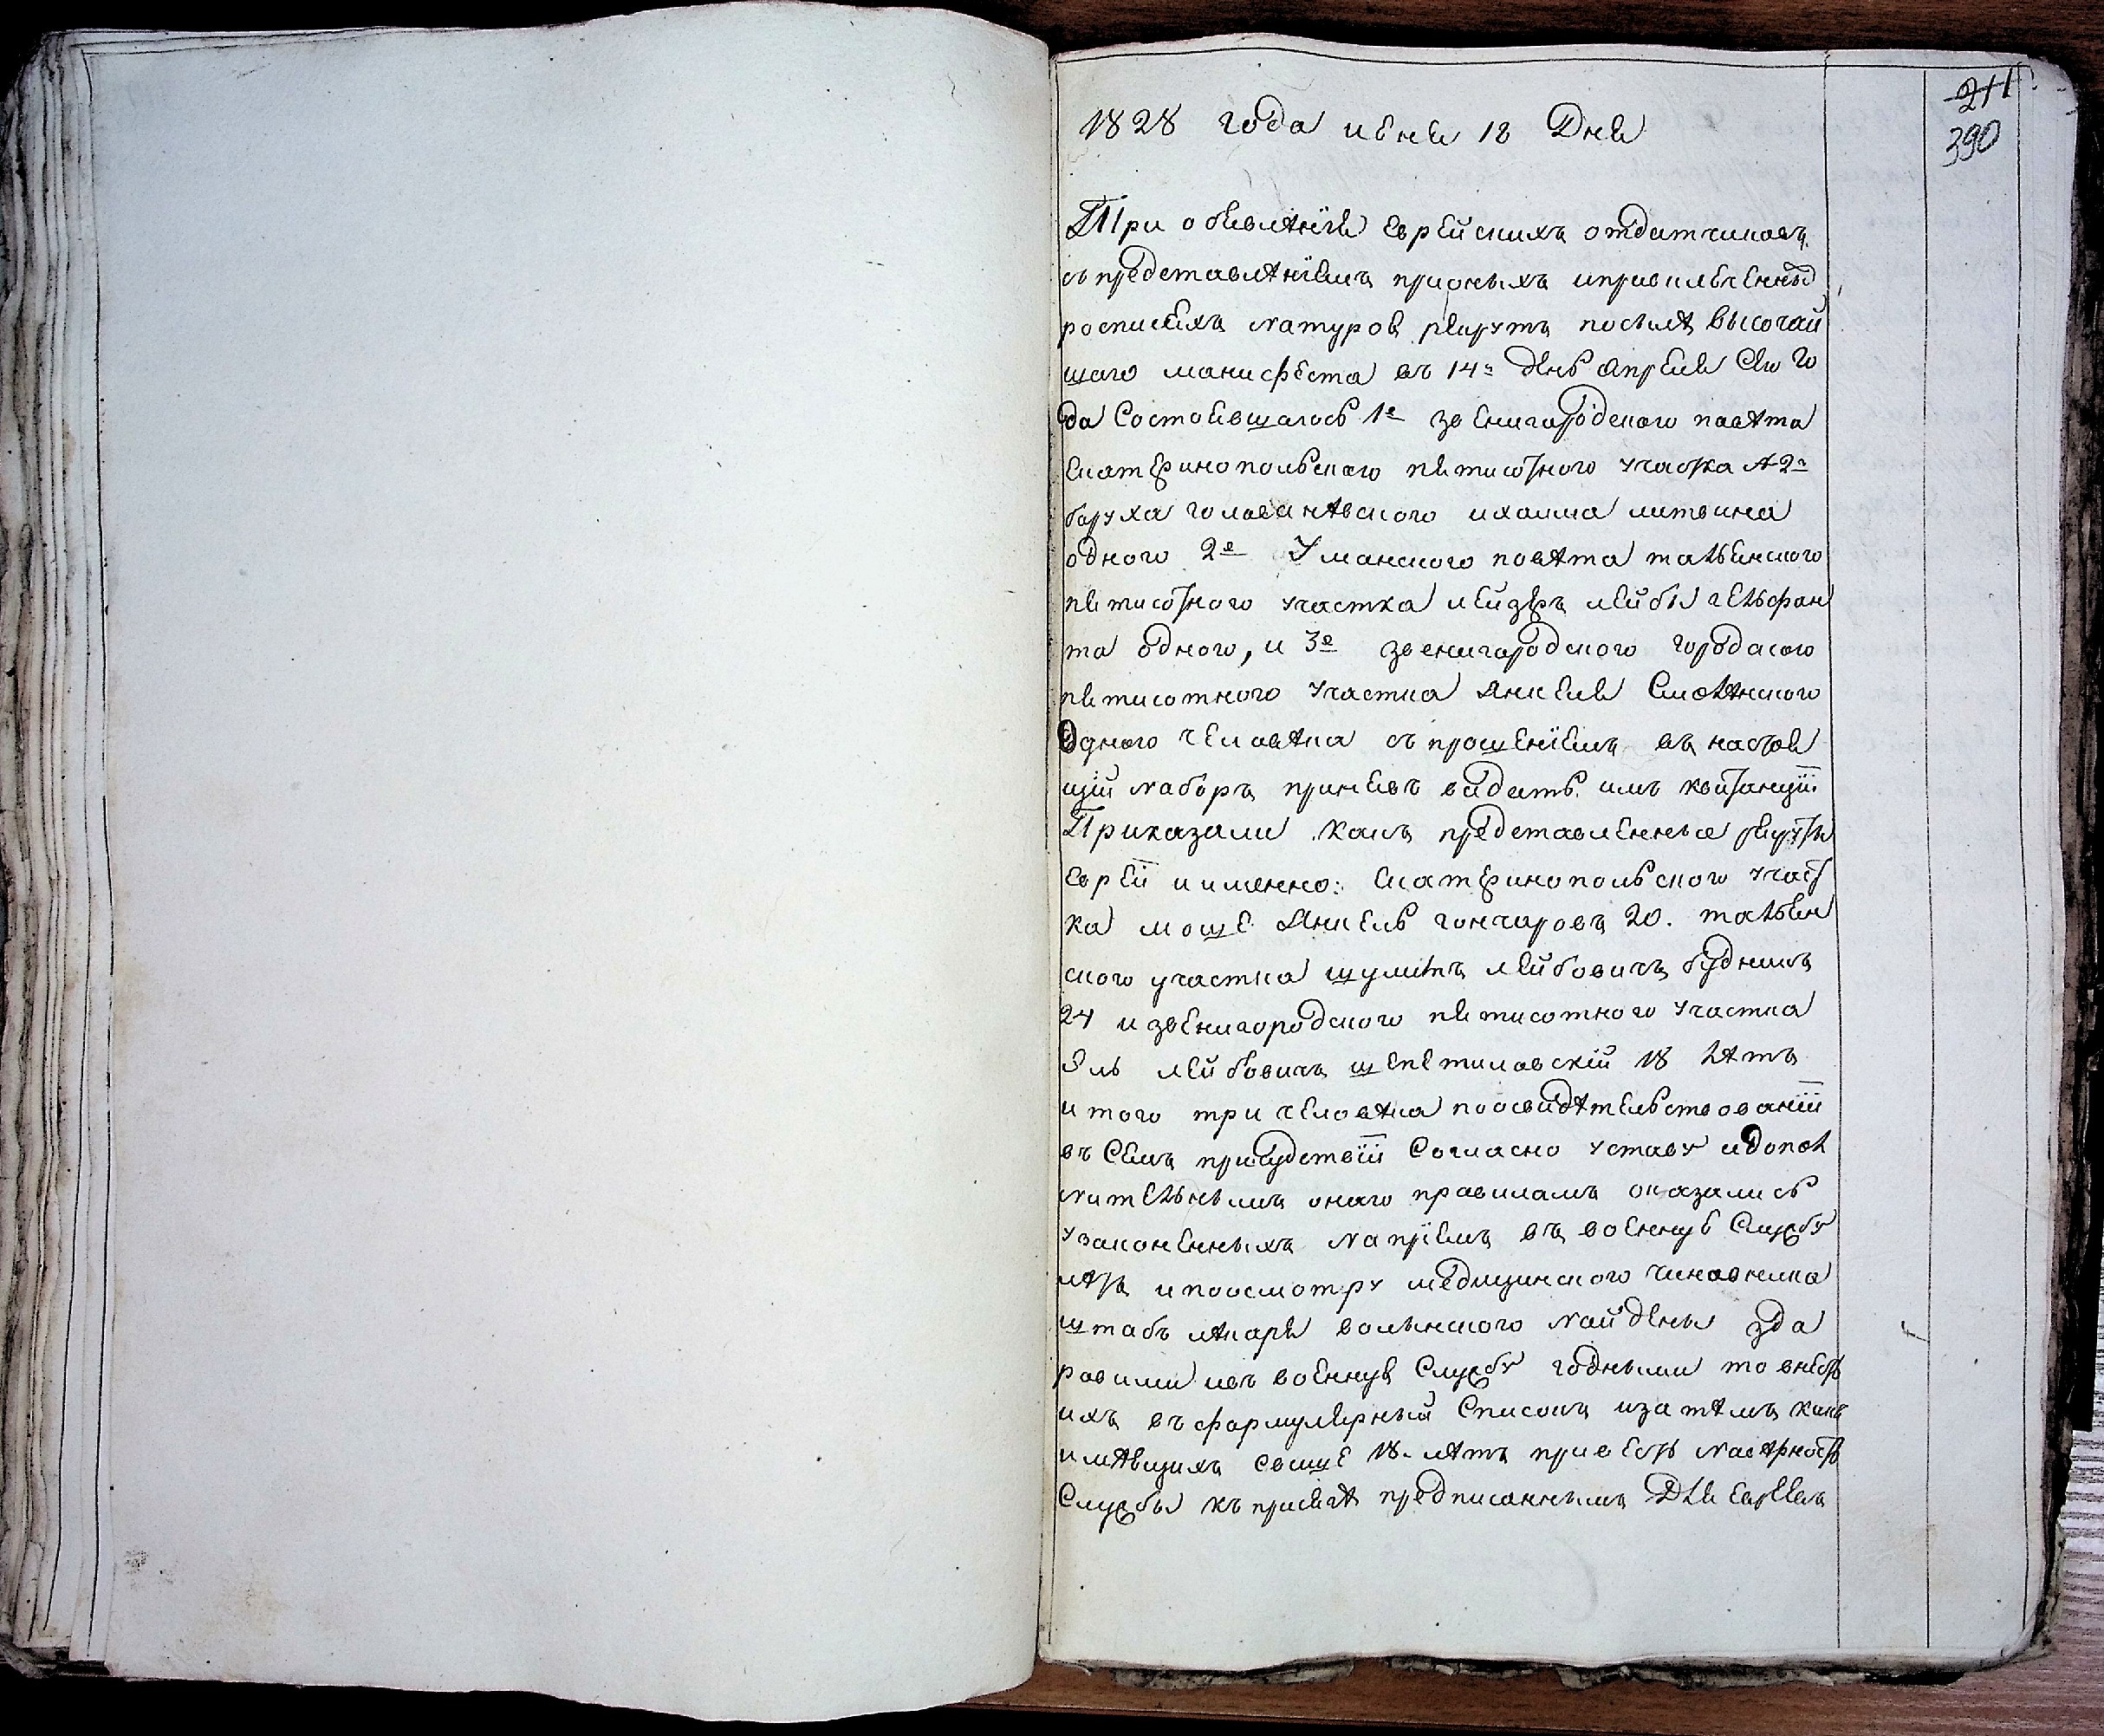 211
390
1828 года июня 18 Дня
При объявленіи еврейскихъ отдатчиковъ
съ представленіемъ
росписяхъ натурою рекрутъ после высочай
шаго манифеста въ 14й день апреля сего го
да состоявшагось 1е звенигородского повѣта
екатеринопольского пятисотного участка
боруха голованѣвского ихаима литвина
одного 2е Уманского повѣта тальянского
пятисотного участка лейзеръ лейбы гельфан
та одного, и 3е звенигородского городского
пятисотного участка Янкеля Смѣлянского
Одного человѣка съ прошеніемъ въ настоя
щій наборъ принявъ видать имъ квитанціи
Приказали какъ представленные рекруты
евреи и именно: екатеринопольского участ
ка моше Янкель гончаровъ 20. тальян
ского участка шулимъ лейбовичъ будникъ
24 и звенигородского пятисотного участка
Эль лейбовичъ щепетиловскій 18 лѣтъ
итого три человѣка поосвидѣтельствованіи
въ семъ присудствіи Согласно уставу идопол
нительнымъ онаго правиламъ оказались
узаконенныхъ напріемъ въ военную Службу
лѣтъ ипоосмотру медицинского чиновника
штабъ лѣкаря волынского найдены здо
ровими ивъ военную Службу годными то внесть
ихъ въ формулярный Списокъ изатѣмъ какъ
имѣющихъ свыше 18. лѣтъ привесть навѣрность
Службы къ присягѣ предписаннымъ Для евреевъ